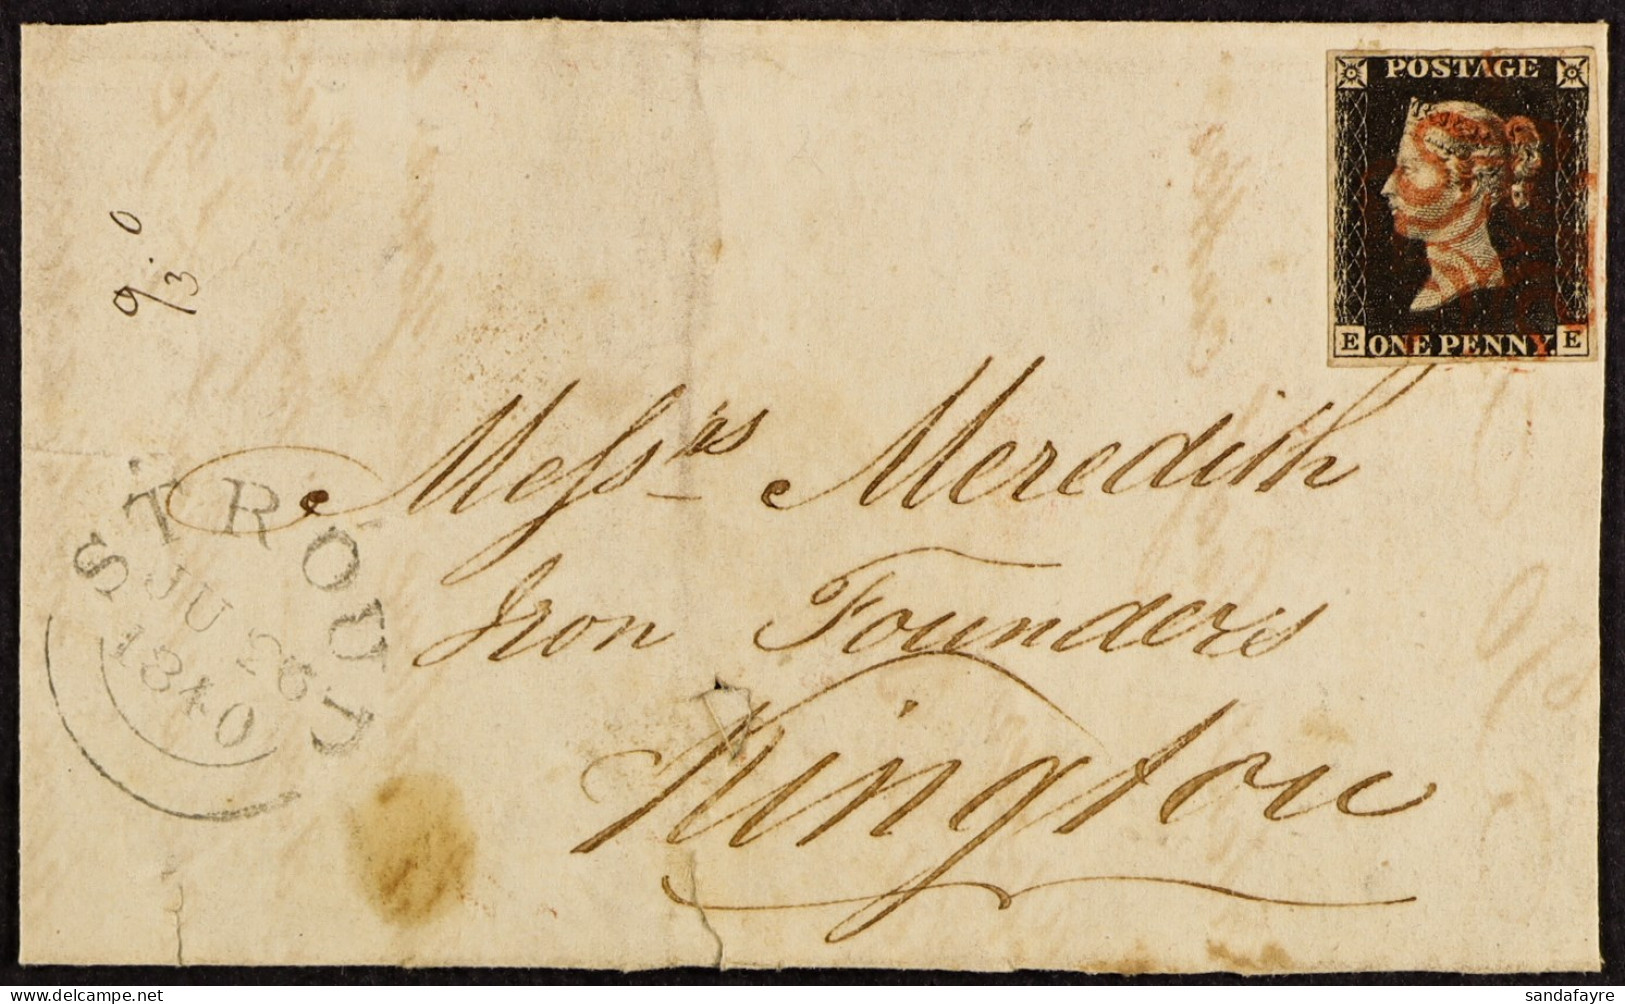 POSTAGE
E ONE PENNY. E
9/3.0
Messrs Meredith
Iron Founders
Kington
STROUD
JU 28
1840
sandafayre